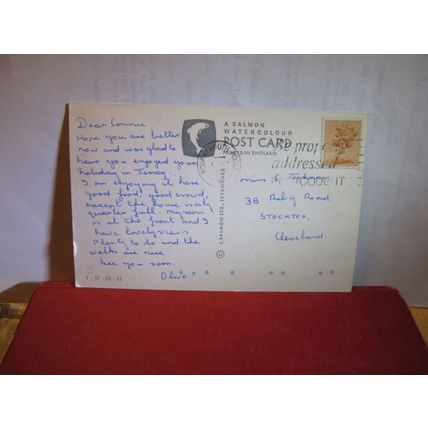 Dear Connie
Hope you are better
now and was glad to
hear you enjoyed your
holiday in Jersey.
I am enjoying it here.
good food, good crowd,
except the house is only
quarter full. my room
is at the front and I
have lovely views
Plenty to do and the
walks are nice.
See you soon.
Olive
A SALMON
WATERCOLOUR
POST CARD
PRINTED IN ENGLAND
J. SALMON LTD., SEVENOAKS
properly
addressed
CODE IT
Miss C.
38 Raby Road
STOCKTON,
Cleveland.